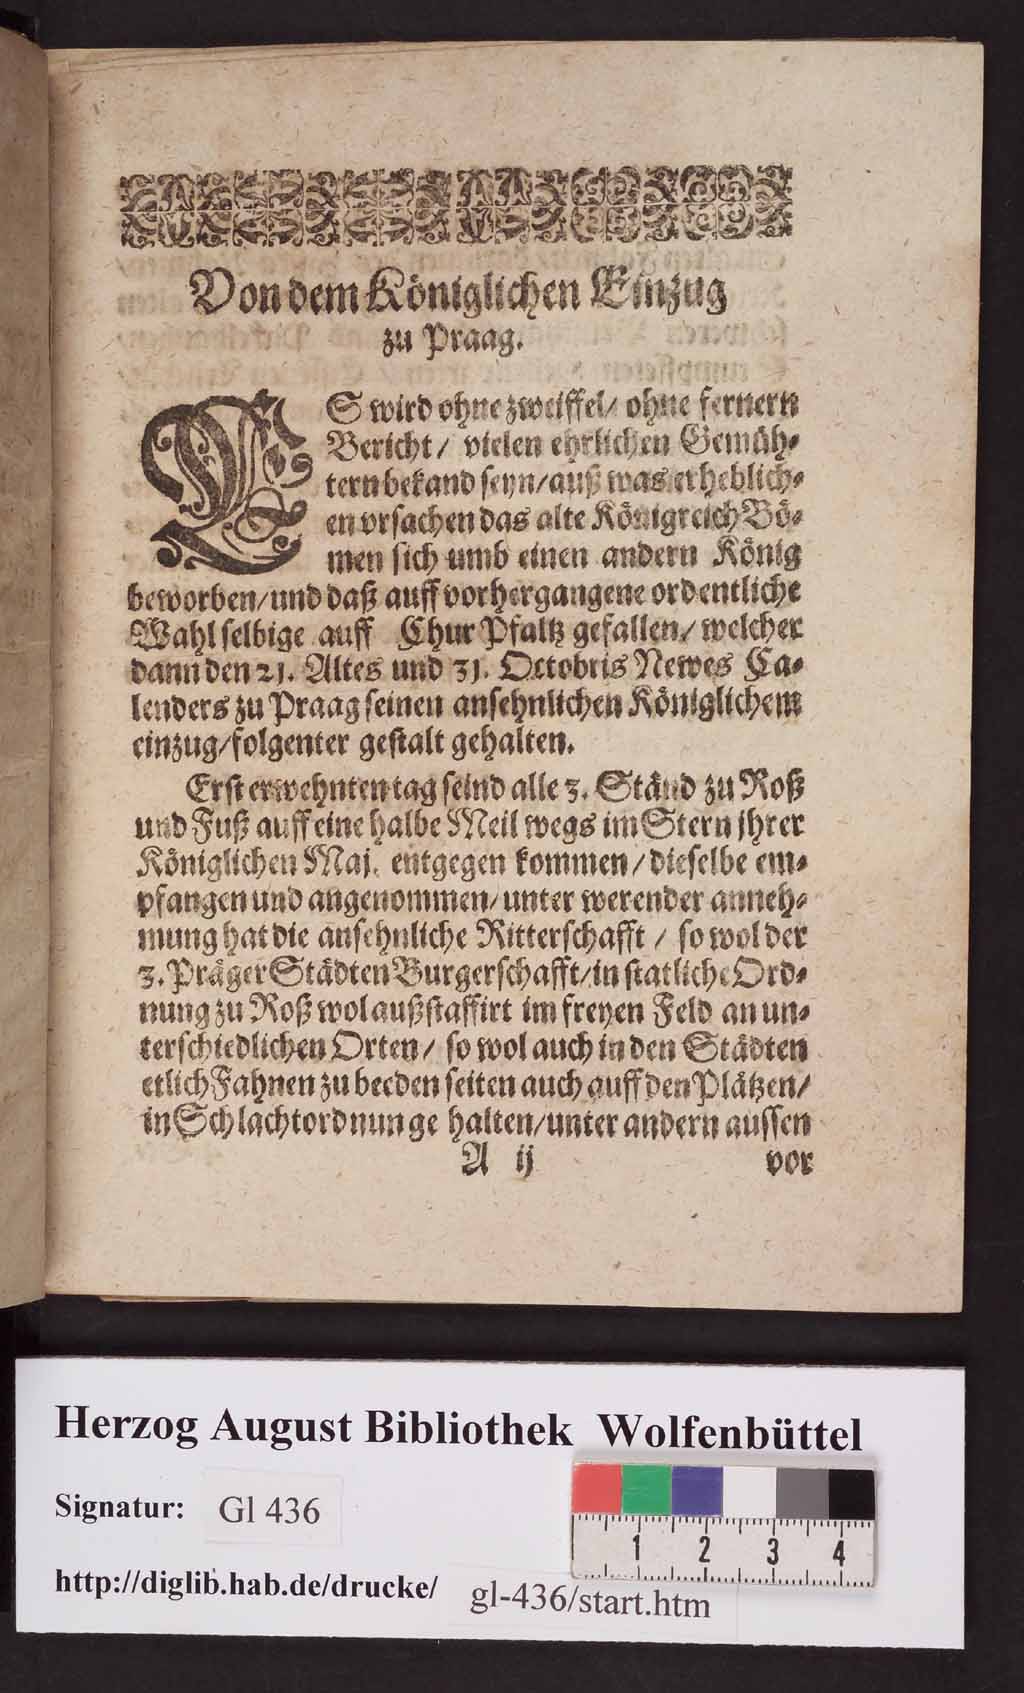 Von dem Königlichen Einzug
zu Praag.
ES wird ohne zweiffel/ ohne fernern
Bericht/ vielen ehrlichen Gemüh-
tern bekand seyn/auß was erheblich-
en vrsachen das alte Königreich Bö-
men sich umb einen andern König
beworben/und daß auff vorhergangene ordentliche
Wahl selbige auff Chur Pfaltz gefallen/ welcher
dann den 21. Altes und 31. Octobris Newes Ca-
lenders zu Praag seinen ansehnlichen Königlichem
einzug/folgenter gestalt gehalten.
Erst erwehnten tag seind alle 3. Ständ zu Roß
und Fuß auff eine halbe Meil wegs im Stern jhrer
Königlichen Maj. entgegen kommen/dieselbe em-
pfangen und angenommen/ unter werender anneh-
mung hat die ansehnliche Ritterschafft/ so wol der
3. Präger Städten Burgerschafft/in statliche Ord-
nung zu Roß wol außstaffirt im freyen Feld an un-
terschiedlichen Orten/ so wol auch in den Städten
etlich Fahnen zu beeden seiten auch auff den Plätzen/
in Schlachtordnunge halten/unter andern aussen
A ij vor
Herzog August Bibliothek Wolfenbüttel
Signatur: Gl 436
1 2 3 4
http://diglib.hab.de/drucke/ gl-436/start.htm